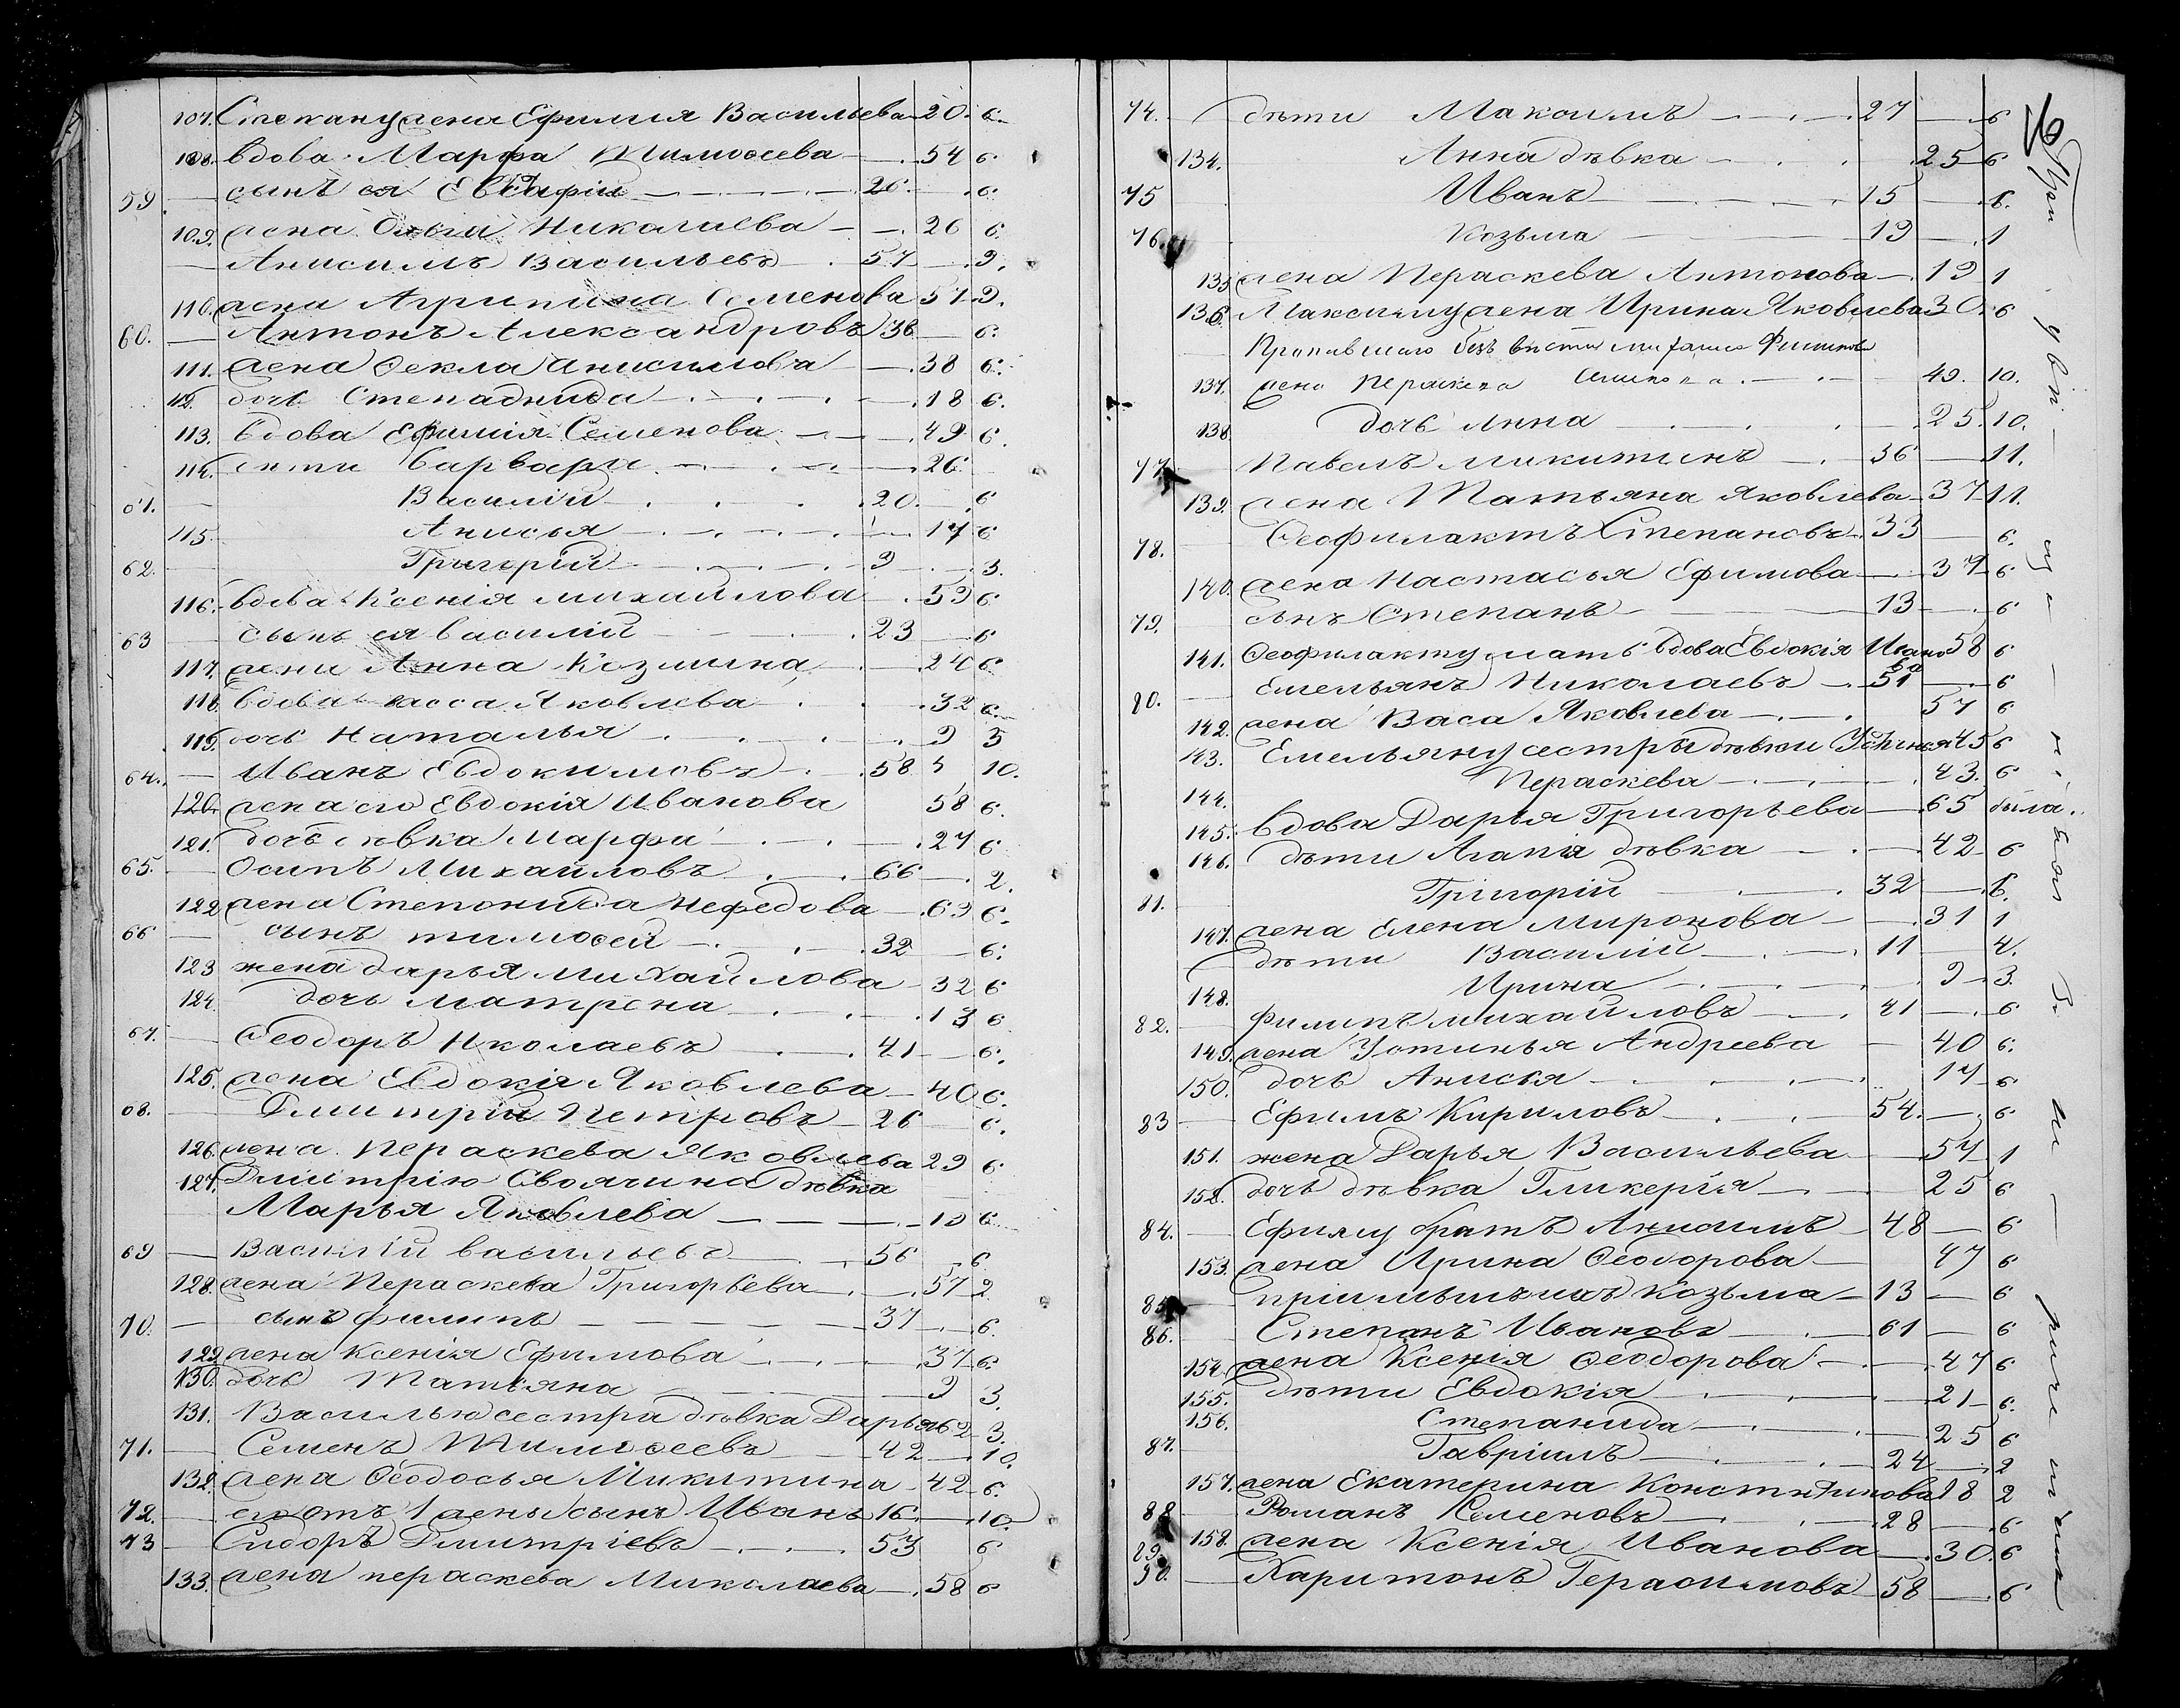 107. Степану жена Ефимия Васильева 20. 6.
108. вдова Марфа Тимоѳеева 54 6.
59. сынъ ея Евстафiй 26. 6.
109. жена Ольга Николаева 26 6.
Анисимъ Васильевъ 57 9.
110. жена Агрипина Семенова 57. 9.
60. Антонъ Александровъ 36 6.
111. жена Ѳекла Анисимова 38 6.
112. дочь Степанида 18 6.
113. вдова Ефимiя Семенова 49 6.
114. дѣти Варвара 26
61. Василiй 20. 6
115. Анисья 17 6
62. Григорiй 9 3.
116. вдова Ксенiя Михайлова 59 6
63 сынъ ея Василiй 23 6
117. жена Анна Козмина 24 6
118. вдова Васса Яковлева 32 6
119. дочь Наталья 9 3
64. Иванъ Евдокимовъ 58 10.
120. жена его Евдокiя Иванова 58 6.
121. дочь дѣвка Марфа 27 6
65. Осипъ Михайловъ 66 2.
122 жена Степонида Нефедова 69 6.
66 сынъ Тимоѳей 32 6.
123 жена Дарья Михайлова 32 6
124. дочь Матрена 13 6
67. Ѳеодоръ Николаевъ 41 6.
125. жена Евдокiя Яковлева 40 6.
68. Дмитрiй Петровъ 26 6.
126. жена Пераскева Яковлева 29 6
127. Дмитрiю своячина дѣвка
Марья Яковлева 6
69 Василiй Васильевъ 56 6
128. жена Пераскева Григорьева 57 2
70. сынъ Филипъ 37 6.
129. жена Ксенiя Ефимова 37 6
130. дочь Татьяна 9 3.
131. Василью сестра дѣвка Дарья 62 3.
71. Семенъ Тимоѳеевъ 42 10.
132. жена Ѳеодосья Микитина 42 6.
72. его отъ 1 жены сынъ Иванъ 16 10.
73 Сидоръ Дмитрiевъ 53 6
133. жена Пераскева Миколаева 58 6
74. дѣти Максимъ 27 6
134. Анна дѣвка 25 6
75 Иванъ 15 6.
76. Козьма 19 1
135 жена Пераскева Антонова 19 1
136. Максиму жена Ирина Яковлева 30. 6
Пропавшаго безъ вѣсти
137. жена Пераскева 49. 10.
138. дочь Анна 25. 10.
77. Павелъ Микитинъ 36 11.
139. жена Татьяна Яковлева 37 11.
78. Ѳеофилактъ Степановъ 33 6.
140. жена Настасья Ефимова 37 6
79. сынъ Степанъ 13 6
141. Ѳеофилакту мать вдова Евдокiя Иванова 58 6
80. Емельянъ Николаевъ 51 6
142. жена Васа Яковлева 57 6
143. Емельяну сестры дѣвки Устинья 45 6
144. Пераскева 43. 6
145. вдова Дарья Григорьева 65 была.
146. дѣти Агапiя дѣвка 42 6
81. Григорiй 32 6.
147. жена Елена Миронова 31 1
дѣти Василiй 11 4.
148. Ирина 9 3.
82. Филипъ Михайловъ 41 6
149. жена Устинья Андреева 40 6.
150. дочь Анисья 17 6
83 Ефимъ Кириловъ 54. 6
151. жена Дарья Васильева 57 1
152. дочь дѣвка Гликерiя 25 6
84. Ефиму братъ Анисимъ 48 6
153. жена Ирина Ѳеодорова 47 6
85. прiимышъ Козьма 13 6
86. Степанъ Ивановъ 61 6
154. жена Ксенiя Ѳеодорова 47 6
155. дѣти Евдокiя 21 6.
156. Степанида 25 6
87. Гаврiилъ 24 2
157. жена Екатерина Константинова 18 2
88 Романъ Семеновъ 28 6
89. 158. жена Ксенiя Иванова 30. 6
90. Харитонъ Герасимовъ 58 6